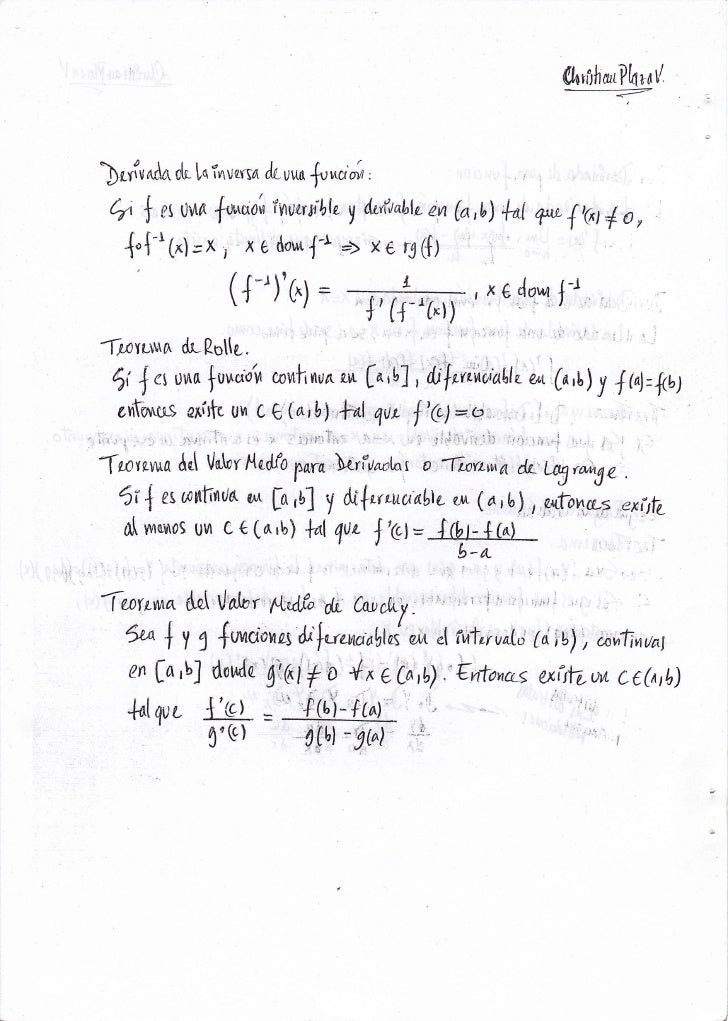 Christian Plaza V.
Derivada de la inversa de una función:
Si f es una función inversible y derivable en (a,b) tal que f'(x) ≠ 0,
f∘f⁻¹(x) = x, x ∈ dom f⁻¹ ⇒ x ∈ rg(f)
(f⁻¹)'(x) = 1 / f'(f⁻¹(x)), x ∈ dom f⁻¹
Teorema de Rolle.
Si f es una función continua en [a,b], diferenciable en (a,b) y f(a)=f(b)
entonces existe un c ∈ (a,b) tal que f'(c) = 0
Teorema del Valor Medio para Derivadas o Teorema de Lagrange.
Si f es continua en [a,b] y diferenciable en (a,b), entonces existe
al menos un c ∈ (a,b) tal que f'(c) = f(b)-f(a) / b-a
Teorema del Valor Medio de Cauchy.
Sea f y g funciones diferenciables en el intervalo (a,b), continuas
en [a,b] donde g'(x) ≠ 0 ∀x ∈ (a,b). Entonces existe un c ∈ (a,b)
tal que f'(c) / g'(c) = f(b)-f(a) / g(b)-g(a)